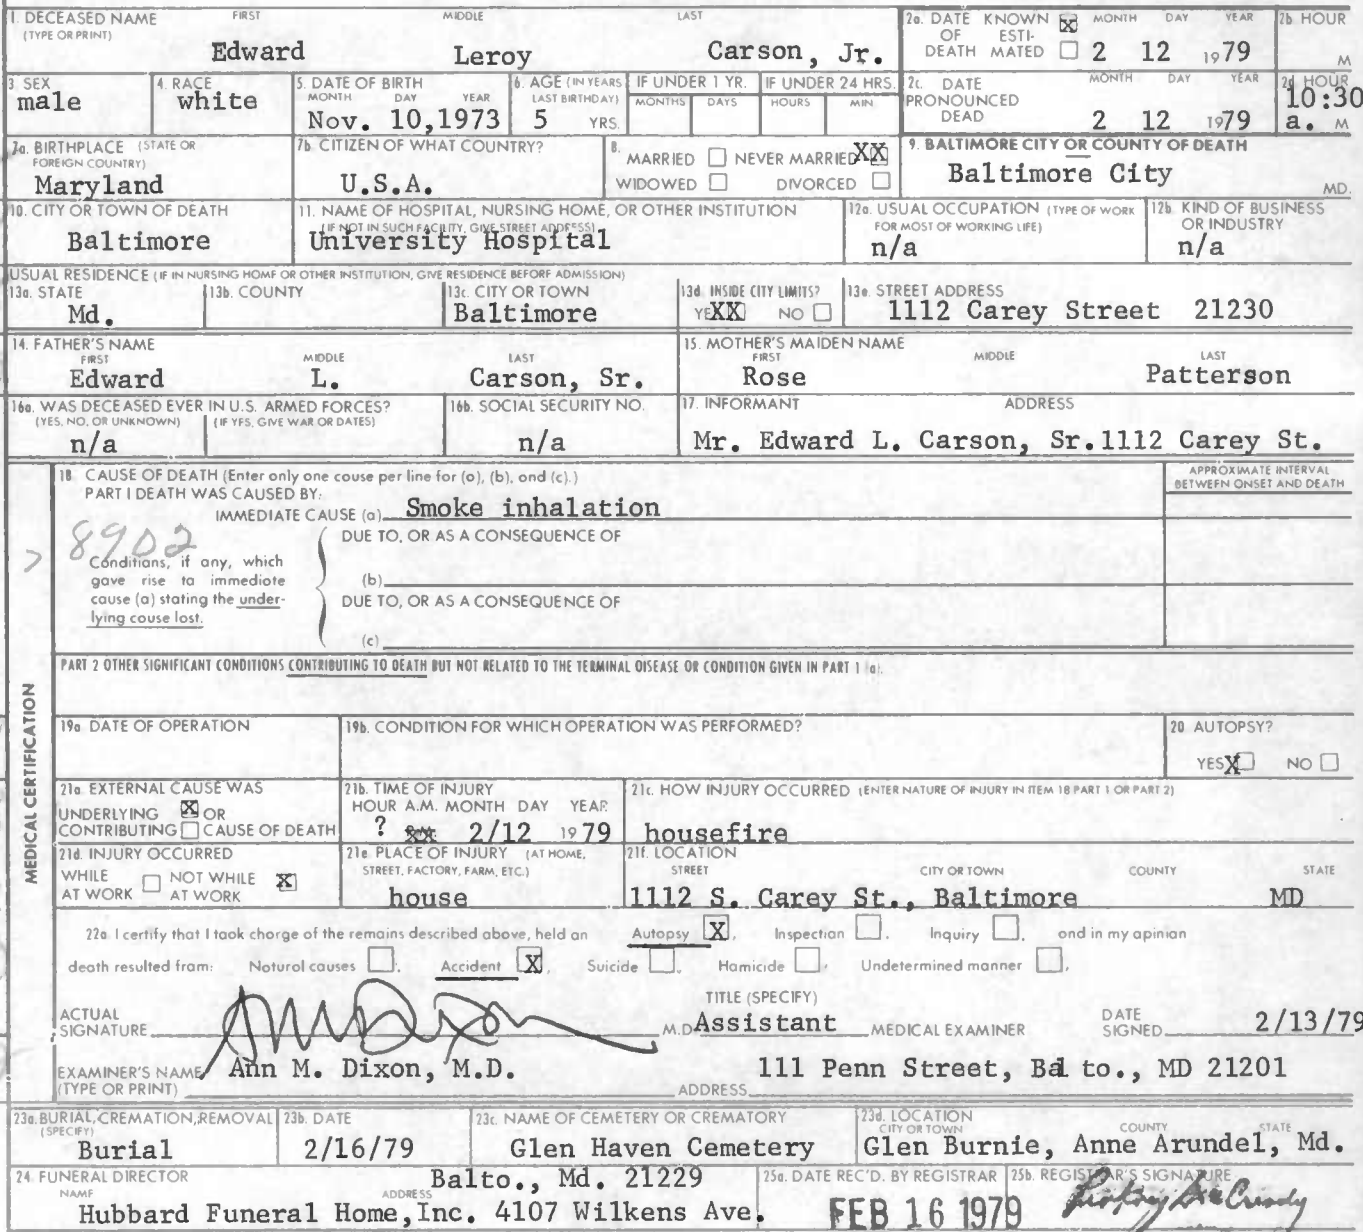 1. DECEASED NAME FIRST MIDDLE LAST
(TYPE OR PRINT)
Edward Leroy Carson, Jr.
2a. DATE KNOWN X MONTH DAY YEAR
OF ESTI-
DEATH MATED 2 12 1979
2b. HOUR
M
3. SEX
male
4. RACE
white
5. DATE OF BIRTH
MONTH DAY YEAR
Nov. 10,1973
6. AGE (IN YEARS
LAST BIRTHDAY)
5 YRS.
IF UNDER 1 YR.
MONTHS DAYS
IF UNDER 24 HRS.
HOURS MIN.
2c. DATE MONTH DAY YEAR
PRONOUNCED
DEAD 2 12 1979
2d. HOUR
10:30
a. M
7a. BIRTHPLACE (STATE OR
FOREIGN COUNTRY)
Maryland
7b. CITIZEN OF WHAT COUNTRY?
U.S.A.
8.
MARRIED NEVER MARRIED XX
WIDOWED DIVORCED
9. BALTIMORE CITY OR COUNTY OF DEATH
Baltimore City
MD.
10. CITY OR TOWN OF DEATH
Baltimore
11. NAME OF HOSPITAL, NURSING HOME, OR OTHER INSTITUTION
(IF NOT IN SUCH FACILITY, GIVE STREET ADDRESS)
University Hospital
12a. USUAL OCCUPATION (TYPE OF WORK
FOR MOST OF WORKING LIFE)
n/a
12b. KIND OF BUSINESS
OR INDUSTRY
n/a
USUAL RESIDENCE (IF IN NURSING HOME OR OTHER INSTITUTION, GIVE RESIDENCE BEFORE ADMISSION)
13a. STATE
Md.
13b. COUNTY
13c. CITY OR TOWN
Baltimore
13d. INSIDE CITY LIMITS?
YEXX NO
13e. STREET ADDRESS
1112 Carey Street 21230
14. FATHER'S NAME
FIRST MIDDLE LAST
Edward L. Carson, Sr.
15. MOTHER'S MAIDEN NAME
FIRST MIDDLE LAST
Rose Patterson
16a. WAS DECEASED EVER IN U.S. ARMED FORCES?
(YES, NO, OR UNKNOWN) (IF YES, GIVE WAR OR DATES)
n/a
16b. SOCIAL SECURITY NO.
n/a
17. INFORMANT ADDRESS
Mr. Edward L. Carson, Sr.1112 Carey St.
MEDICAL CERTIFICATION
18 CAUSE OF DEATH (Enter only one couse per line for (a), (b), and (c).)
PART I DEATH WAS CAUSED BY:
IMMEDIATE CAUSE (a) Smoke inhalation
APPROXIMATE INTERVAL
BETWEEN ONSET AND DEATH
8902
Conditions, if any, which
gave rise to immediate
cause (a) stating the under-
lying couse lost.
DUE TO, OR AS A CONSEQUENCE OF
(b)
DUE TO, OR AS A CONSEQUENCE OF
(c)
PART 2 OTHER SIGNIFICANT CONDITIONS CONTRIBUTING TO DEATH BUT NOT RELATED TO THE TERMINAL DISEASE OR CONDITION GIVEN IN PART 1 (a).
19a. DATE OF OPERATION
19b. CONDITION FOR WHICH OPERATION WAS PERFORMED?
20 AUTOPSY?
YES X NO
21a. EXTERNAL CAUSE WAS
UNDERLYING X OR
CONTRIBUTING CAUSE OF DEATH
21b. TIME OF INJURY
HOUR A.M. MONTH DAY YEAR
? 2/12 1979
21c. HOW INJURY OCCURRED (ENTER NATURE OF INJURY IN ITEM 18 PART 1 OR PART 2)
housefire
21d. INJURY OCCURRED
WHILE NOT WHILE X
AT WORK AT WORK
21e PLACE OF INJURY (AT HOME,
STREET, FACTORY, FARM, ETC.)
house
21f. LOCATION
STREET CITY OR TOWN COUNTY STATE
1112 S. Carey St., Baltimore MD
22a I certify that I took charge of the remains described above, held an Autopsy X, Inspection, Inquiry, and in my opinion
death resulted from: Natural causes, Accident X, Suicide, Homicide, Undetermined manner,
ACTUAL
SIGNATURE
TITLE (SPECIFY)
M.D. Assistant MEDICAL EXAMINER
DATE
SIGNED 2/13/79
EXAMINER'S NAME
(TYPE OR PRINT) Ann M. Dixon, M.D.
ADDRESS 111 Penn Street, Bal to., MD 21201
23a. BURIAL, CREMATION, REMOVAL
(SPECIFY)
Burial
23b. DATE
2/16/79
23c. NAME OF CEMETERY OR CREMATORY
Glen Haven Cemetery
23d. LOCATION
CITY OR TOWN COUNTY STATE
Glen Burnie, Anne Arundel, Md.
24. FUNERAL DIRECTOR
NAME ADDRESS
Balto., Md. 21229
Hubbard Funeral Home,Inc. 4107 Wilkens Ave.
25a. DATE REC'D. BY REGISTRAR
FEB 16 1979
25b. REGISTRAR'S SIGNATURE